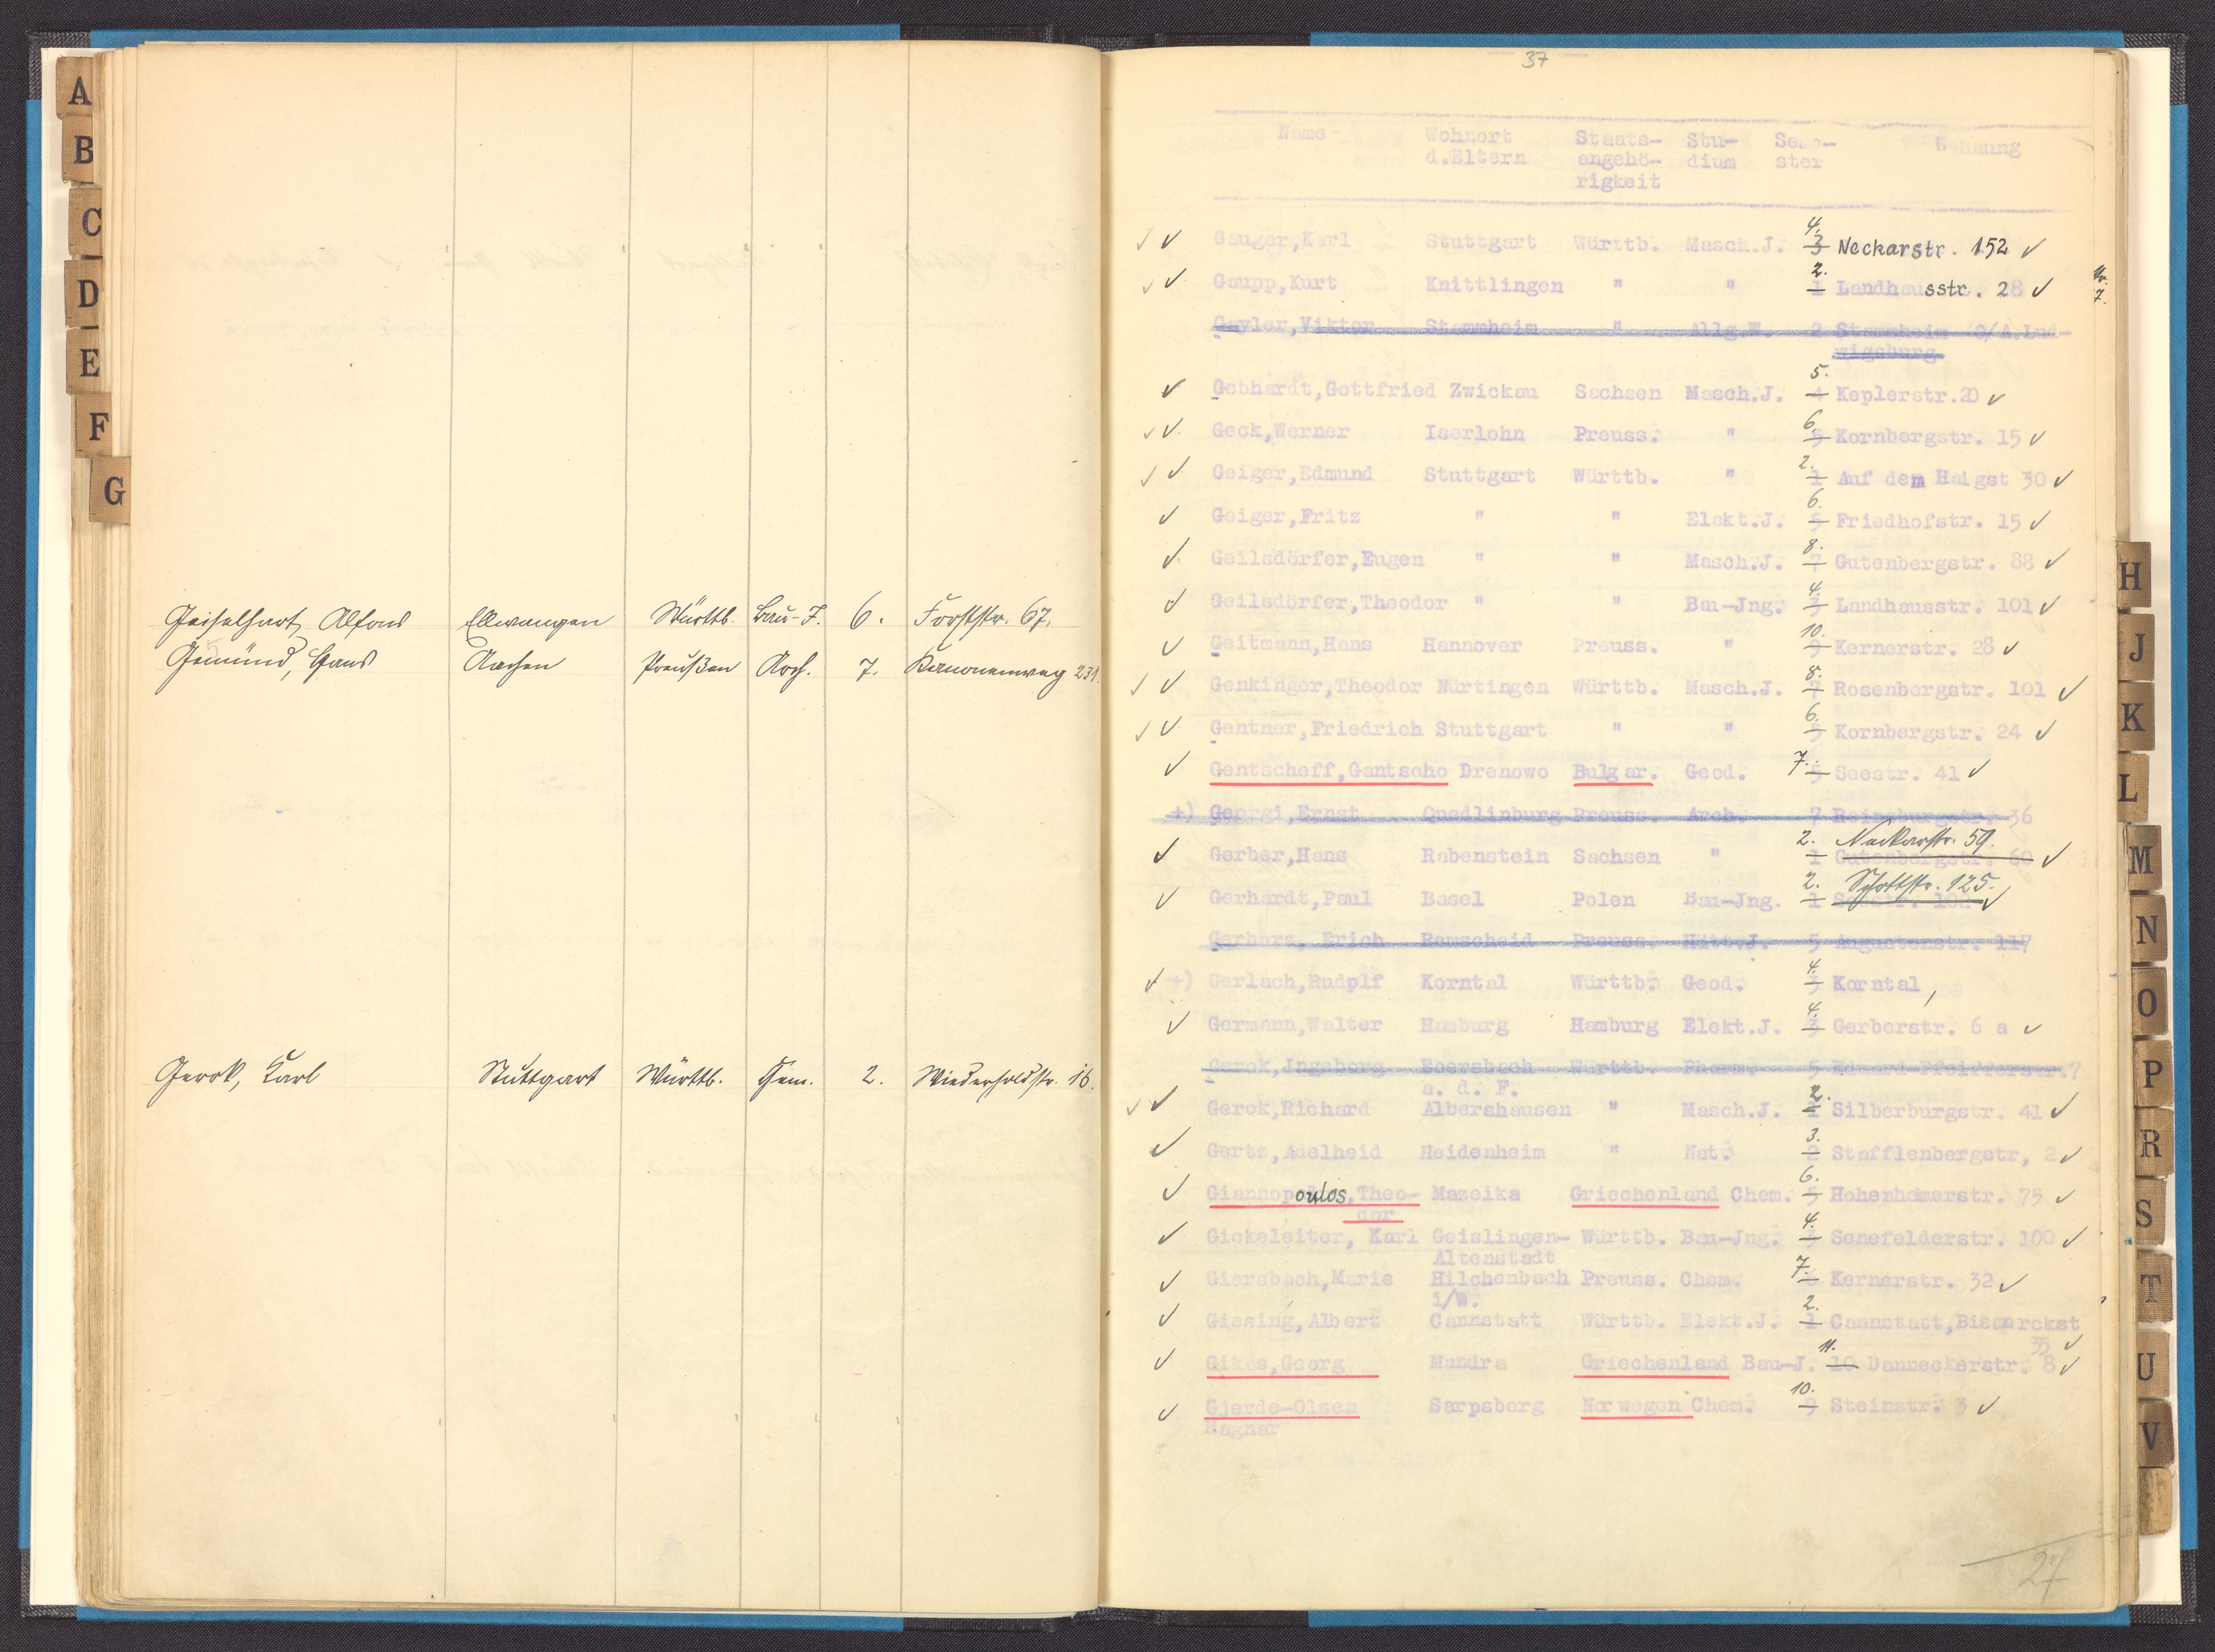 A
B
C
D
E
F
G
Geiselhart, Alfons Ellwangen Württb. Bau-J. 6. Forststr. 67.
Gemünd, Hans Aachen Preußen Arch. 7. Kanonenweg 231.
Gerok, Karl Stuttgart Württb. Chem. 2. Wiederholdstr. 16.
37
Name Wohnort Staats- Stu- Sem- Wohnung
d.Eltern angehö- dium ster
rigkeit
4.
Gauger,Karl Stuttgart Württb. Masch.J. 3 Neckarstr. 152
2.
Gaupp,Kurt Knittlingen " " 1 Landhausstr. 28
Gayler,Viktor Stammheim " Allg.W. 2 Stammheim O/A.Lud-
wigsburg
5.
Gebhardt,Gottfried Zwickau Sachsen Masch.J. 4 Keplerstr.20
6.
Geck,Werner Iserlohn Preuss. " 5 Kornbergstr. 15
2.
Geiger,Edmund Stuttgart Württb. " 1 Auf dem Haigst 30
6.
Geiger,Fritz " " Elekt.J. 5 Friedhofstr. 15
8.
Geilsdörfer,Eugen " " Masch.J. 7 Gutenbergstr. 88
4.
Geilsdörfer,Theodor " " Bau-Jng. 3 Landhausstr. 101
10.
Geitmann,Hans Hannover Preuss. " 9 Kernerstr. 28
8.
Genkinger,Theodor Nürtingen Württb. Masch.J. 7 Rosenbergstr. 101
6.
Gentner,Friedrich Stuttgart " " 5 Kornbergstr. 24
Gentscheff,Gantscho Drenowo Bulgar. Geod. 7. 5 Seestr. 41
+) Georgi,Ernst Quedlinburg Preuss. Arch. 7 Reinsburgstr. 36
2. Neckarstr. 59.
Gerber,Hans Rabenstein Sachsen " 1 Gutenbergstr. 60
2. Schottstr. 125.
Gerhardt,Paul Basel Polen Bau-Jng. 1
Gerharz, Erich Remscheid Preuss. Hütt.J. 5 Augustenstr. 117
4.
+) Gerlach,Rudplf Korntal Württb. Geod. 3 Korntal,
4.
Germann,Walter Hamburg Hamburg Elekt.J. 3 Gerberstr. 6 a
Gerok,Jngeborg Ebersbach Württb. Pharm. 5 Eduard-Pfeifferstr.7
a. d. F.
2.
Gerok,Richard Albershausen " Masch.J. 1 Silberburgstr. 41
3.
Gertz,Adelheid Heidenheim " Nat. 2 Stafflenbergstr, 2
6.
Giannopoulos,Theo- Mazeika Griechenland Chem. 5 Hohenheimerstr. 75
dor
4.
Gickeleiter, Karl Geislingen- Württb. Bau-Jng. 3 Senefelderstr. 100
Altenstadt
Giersbach,Marie Hilchenbach Preuss. Chem. 7. Kernerstr. 32
i/W.
2.
Giesing,Albert Cannstatt Württb. Elekt.J. 1 Cannstatt,Bismarckst
35
11.
Gikas,Georg Mandra Griechenland Bau-J. 10 Danneckerstr. 8
10.
Gjerde-Olsen Sarpsborg Norwegen Chem. 9 Steinstr. 3
Ragnar
27
H
J
K
L
M
N
O
P
R
S
T
U
V